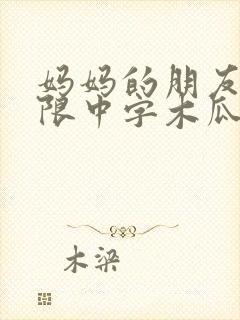 妈妈的朋友
限中字木瓜
木梁